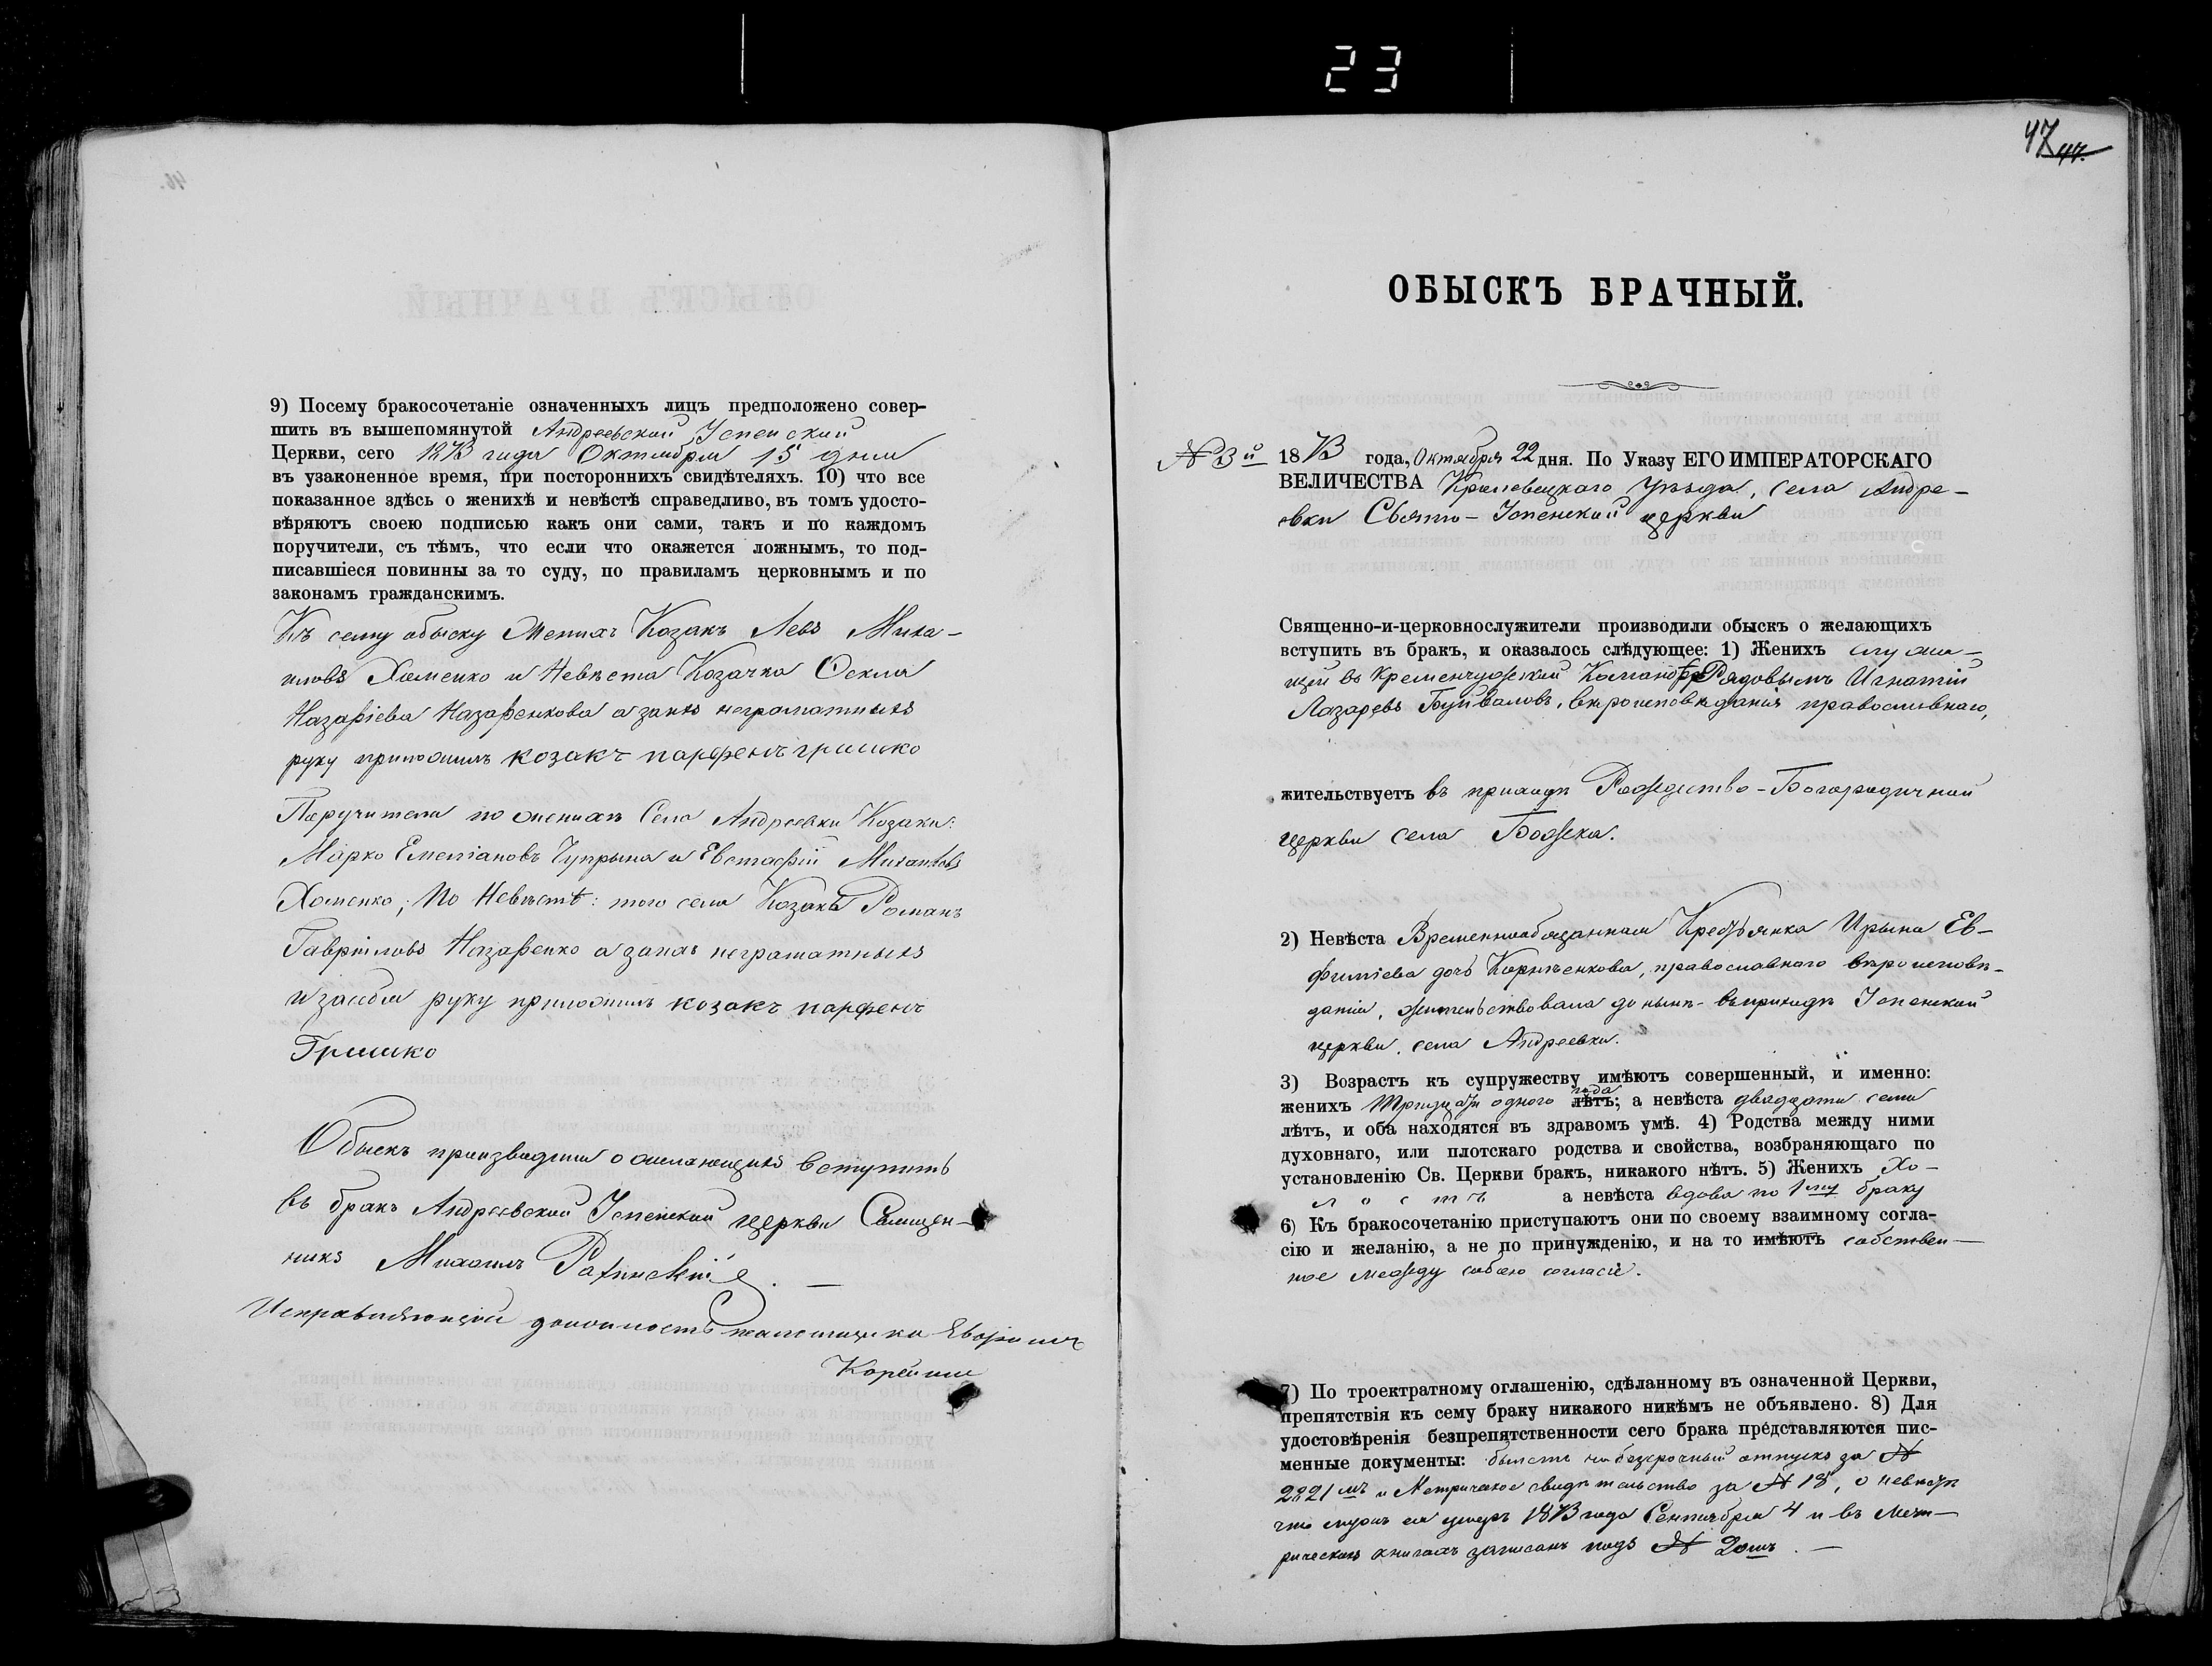 23
9) Посему бракосочетаніе означенныхъ лицъ предположено совер-
шить въ вышепомянутой Андреевской Успенской
Церкви, сего 1873 года Октября 15 дня
въ узаконенное время, при постороннихъ свидѣтеляхъ. 10) что все
показанное здѣсь о женихѣ и невѣстѣ справедливо, въ томъ удосто-
вѣряютъ своею подписью какъ они сами, такъ и по каждомъ
поручители, съ тѣмъ, что если что окажется ложнымъ, то под-
писавшіеся повинны за то суду, по правиламъ церковнымъ и по
законамъ гражданскимъ.
Къ сему обыску Женихъ Козакъ Левъ Миха-
иловъ Хоменко и Невѣста Козачка Фекла
Назаріева Назаренкова а за нихъ неграматныхъ
руку приложилъ козакъ парфенъ гришко
Поручители по женихѣ Села Андреевки Козаки:
Марко Емеліановъ Чупрына и Евстафій Михаиловъ
Хоменко; По Невѣстѣ: того села Козакъ Романъ
Гавріиловъ Назаренко а за нихъ неграматныхъ
и за себя руку приложилъ козакъ парфенъ
Гришко
Обыскъ производили о желающихъ вступить
въ бракъ Андреевской Успенской церкви Священ-
никъ Михаилъ
Исправляющій должность псаломщика
47 47.
ОБЫСКЪ БРАЧНЫЙ.
№ 3й 1873 года, Октября 22 дня. По Указу ЕГО ИМПЕРАТОРСКАГО
ВЕЛИЧЕСТВА Кролевецкаго Уѣзда, села Андре-
евки Свято-Успенской церкви
Священно-и-церковнослужители производили обыскъ о желающихъ
вступить въ бракъ, и оказалось слѣдующее: 1) Женихъ служа-
щій въ Кременчугской Командѣ Рядовымъ Игнатій
Лазаревъ Буйваловъ, вѣроисповѣданія православнаго,
жительствуетъ въ приходѣ Рождество-Богородичной
церкви села Божка.
2) Невѣста Временнообязанная Крестьянка Ирына Ев-
фиміева дочь Корнѣенкова, православнаго вѣроисповѣ-
данія, жительствовала до нынѣ въ приходѣ Успенской
церкви, села Андреевки.
3) Возрастъ къ супружеству имѣютъ совершенный, и именно:
женихъ тридцать одного года лѣтъ; а невѣста двадцати семи
лѣтъ, и оба находятся въ здравомъ умѣ. 4) Родства между ними
духовнаго, или плотскаго родства и свойства, возбраняющаго по
установленію Св. Церкви бракъ, никакого нѣтъ. 5) Женихъ Хо-
лостъ а невѣста вдова по 1му браку
6) Къ бракосочетанію приступаютъ они по своему взаимному согла-
сію и желанію, а не по принужденію, и на то имѣютъ собствен-
ное между собою согласіе.
7) По троекратному оглашенію, сдѣланному въ означенной Церкви,
препятствія къ сему браку никакого никѣмъ не объявлено. 8) Для
удостовѣренія безпрепятственности сего брака представляются пис-
менные документы: билетъ на безсрочный отпускъ за №
2821мъ и Метрическое свидѣтельство за № 18, о невѣстѣ
что мужъ ея умеръ 1873 года Сентября 4 и въ Мет-
рическихъ книгахъ записанъ подъ № 20мъ. —